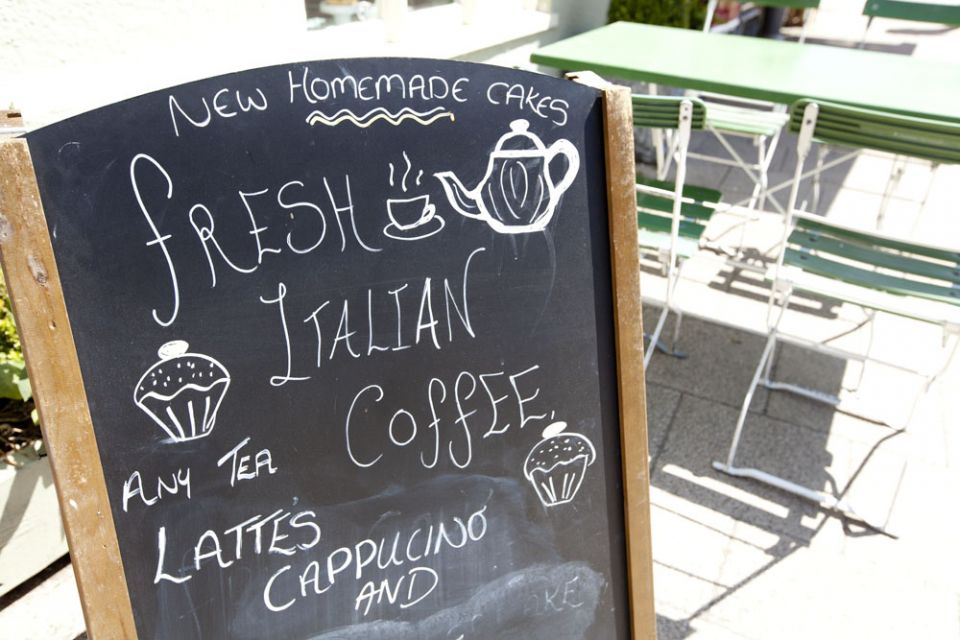 NEW HOMEMADE CAKES
fRESH
ITALIAN
COffEE.
ANY TEA
LATTES
CAPPUCINO
AND